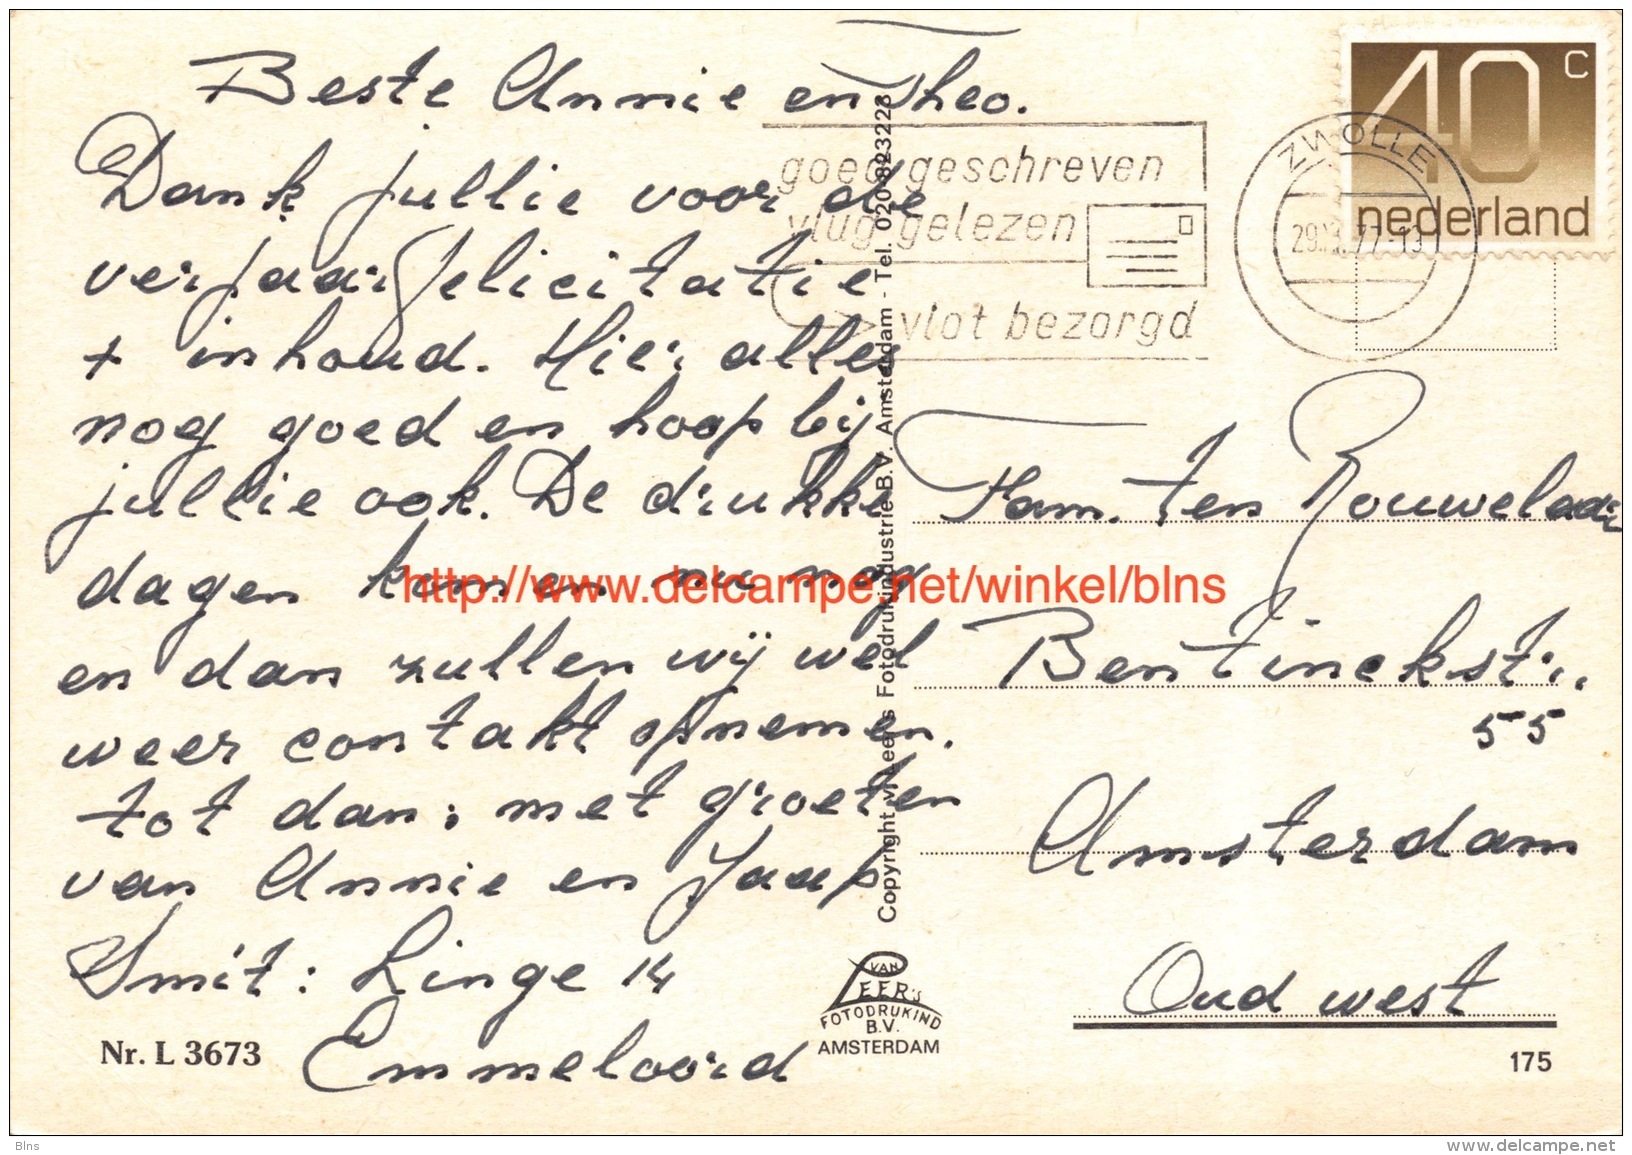 Beste Annie en Theo.
Dank jullie voor de
verjaarfelicitatie
+ inhoud. Hier alles
nog goed en hoop bij
jullie ook. De drukke
dagen komen nu nog
en dan zullen wij wel
weer contakt opnemen.
tot dan: met groeten
van Annie en Jaap
Smit: Linge 14
Emmeloord
Nr. L 3673
goed geschreven
vlug gelezen
vlot bezorgd
ZWOLLE
77-19
40 c
nederland
Copyright v. Leer's Fotodrukindustrie B.V. Amsterdam - Tel. 020-823228
Fam. ten Rouwelaar
Bentinckstr.
55
Amsterdam
Oud west
VAN
LEER's
FOTODRUKIND
B.V.
AMSTERDAM
175
http://www.delcampe.net/winkel/blns
Blns
www.delcampe.net